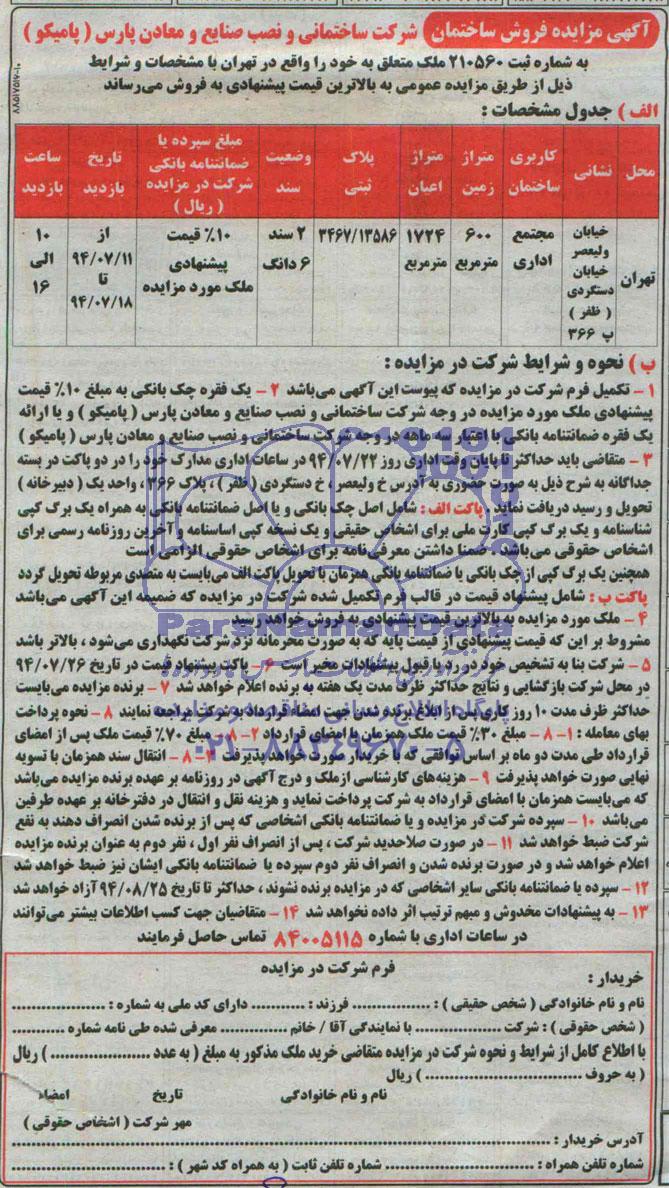 آگهی مزایده فروش ساختمان شرکت ساختمانی و نصب صنایع و معادن پارس ( پامیکو )
به شماره ثبت ۲۱۰۵۶۰ ملک متعلق به خود را واقع در تهران با مشخصات و شرایط
ذیل از طریق مزایده عمومی به بالاترین قیمت پیشنهادی به فروش می‌رساند
الف ) جدول مشخصات :
محل نشانی کاربری ساختمان متراژ زمین متراژ اعیان پلاک ثبتی وضعیت سند مبلغ سپرده یا ضمانتنامه بانکی شرکت در مزایده ( ریال ) تاریخ بازدید ساعت بازدید
تهران خیابان ولیعصر خیابان دستگردی ( ظفر ) پ ۳۶۶ مجتمع اداری ۶۰۰ مترمربع ۱۷۲۴ مترمربع ۳۴۶۷/۱۳۵۸۶ ۲ سند ۶ دانگ ۱۰٪ قیمت پیشنهادی ملک مورد مزایده از ۹۴/۰۷/۱۱ تا ۹۴/۰۷/۱۸ ۱۰ الی ۱۶
ب ) نحوه و شرایط شرکت در مزایده :
۱ – تکمیل فرم شرکت در مزایده که پیوست این آگهی می‌باشد ۲ – یک فقره چک بانکی به مبلغ ۱۰٪ قیمت
پیشنهادی ملک مورد مزایده در وجه شرکت ساختمانی و نصب صنایع و معادن پارس ( پامیکو ) و یا ارائه
یک فقره ضمانتنامه بانکی با اعتبار سه ماهه در وجه شرکت ساختمانی و نصب صنایع و معادن پارس ( پامیکو )
۳ – متقاضی باید حداکثر تا پایان وقت اداری روز ۹۴/۰۷/۲۲ در ساعات اداری مدارک خود را در دو پاکت در بسته
جداگانه به شرح ذیل به صورت حضوری به آدرس خ ولیعصر ، خ دستگردی ( ظفر ) ، پلاک ۳۶۶ ، واحد یک ( دبیرخانه )
تحویل و رسید دریافت نماید . پاکت الف : شامل اصل چک بانکی و یا اصل ضمانتنامه بانکی به همراه یک برگ کپی
شناسنامه و یک برگ کپی کارت ملی برای اشخاص حقیقی و یک نسخه کپی اساسنامه و آخرین روزنامه رسمی برای
اشخاص حقوقی می‌باشد . ضمنا داشتن معرفی نامه برای اشخاص حقوقی الزامی است
همچنین یک برگ کپی از چک بانکی یا ضمانتنامه بانکی همزمان با تحویل پاکت الف می‌بایست به متصدی مربوطه تحویل گردد
پاکت ب : شامل پیشنهاد قیمت در قالب فرم تکمیل شده شرکت در مزایده که ضمیمه این آگهی می‌باشد
۴ – ملک مورد مزایده به بالاترین قیمت پیشنهادی به فروش خواهد رسید
مشروط بر این که قیمت پیشنهادی از قیمت پایه که به صورت محرمانه نزد شرکت نگهداری می‌شود ، بالاتر باشد
۵ – شرکت بنا به تشخیص خود در رد یا قبول پیشنهادات مخیر است ۶ – پاکت پیشنهاد قیمت در تاریخ ۹۴/۰۷/۲۶
در محل شرکت بازگشایی و نتایج حداکثر ظرف مدت یک هفته به برنده اعلام خواهد شد ۷ – برنده مزایده می‌بایست
حداکثر ظرف مدت ۱۰ روز کاری پس از ابلاغ برنده شدن جهت امضاء قرارداد به شرکت مراجعه نمایند ۸ – نحوه پرداخت
بهای معامله : ۱ – ۸ – مبلغ ۳۰٪ قیمت ملک همزمان با امضای قرارداد ۲ – ۸ – مبلغ ۷۰٪ قیمت ملک پس از امضای
قرارداد طی مدت دو ماه بر اساس توافقی که با خریدار صورت خواهد پذیرفت ۳ – ۸ – انتقال سند همزمان با تسویه
نهایی صورت خواهد پذیرفت ۹ – هزینه‌های کارشناسی از ملک و درج آگهی در روزنامه بر عهده برنده مزایده می‌باشد
که می‌بایست همزمان با امضای قرارداد به شرکت پرداخت نماید و هزینه نقل و انتقال در دفترخانه بر عهده طرفین
می‌باشد ۱۰ – سپرده شرکت در مزایده و یا ضمانتنامه بانکی اشخاصی که پس از برنده شدن انصراف دهند به نفع
شرکت ضبط خواهد شد ۱۱ – در صورت صلاحدید شرکت ، پس از انصراف نفر اول ، نفر دوم به عنوان برنده مزایده
اعلام خواهد شد و در صورت برنده شدن و انصراف نفر دوم سپرده یا ضمانتنامه بانکی ایشان نیز ضبط خواهد شد
۱۲ – سپرده یا ضمانتنامه بانکی سایر اشخاصی که در مزایده برنده نشوند ، حداکثر تا تاریخ ۹۴/۰۸/۲۵ آزاد خواهد شد
۱۳ – به پیشنهادات مخدوش و مبهم ترتیب اثر داده نخواهد شد ۱۴ – متقاضیان جهت کسب اطلاعات بیشتر می‌توانند
در ساعات اداری با شماره ۸۴۰۰۵۱۱۵ تماس حاصل فرمایند
فرم شرکت در مزایده
خریدار :
نام و نام خانوادگی ( شخص حقیقی ) : ............... فرزند : ........... دارای کد ملی به شماره : ...................
( شخص حقوقی ) : شرکت ................. با نمایندگی آقا / خانم .............. معرفی شده طی نامه شماره ...........
با اطلاع کامل از شرایط و نحوه شرکت در مزایده متقاضی خرید ملک مذکور به مبلغ ( به عدد .................... ) ریال
( به حروف ................................ ) ریال
نام و نام خانوادگی تاریخ امضاء
مهر شرکت ( اشخاص حقوقی )
آدرس خریدار : ................................................................
شماره تلفن همراه : .............................. شماره تلفن ثابت ( به همراه کد شهر ) : ..............................
ParsNamadData
پایگاه اطلاع رسانی مناقصه و مزایده
۰۲۱-۸۸۳۴۹۶۷۰-۵